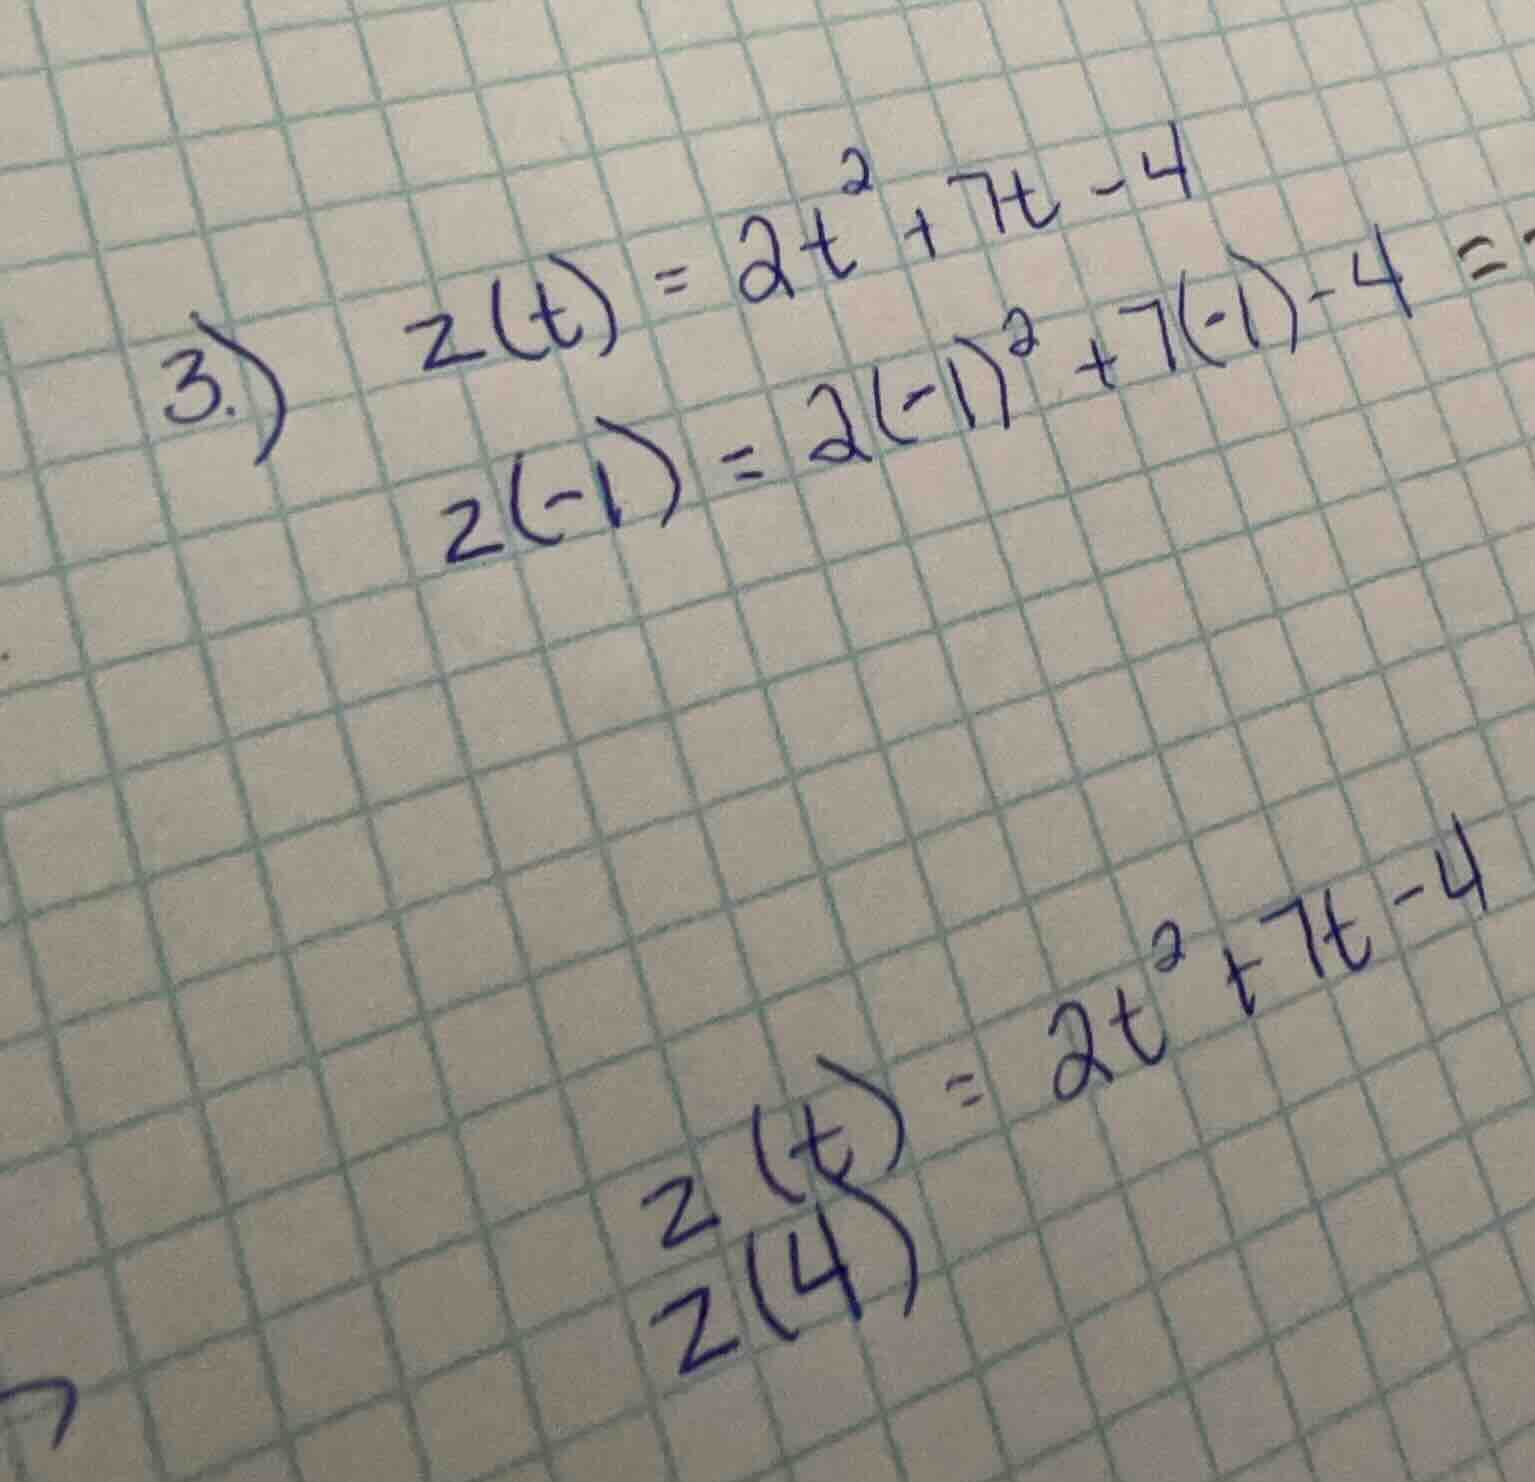 3.) z(t) = 2t² + 7t - 4
z(-1) = 2(-1)² + 7(-1) - 4 =
z(t) = 2t² + 7t - 4
z(4)